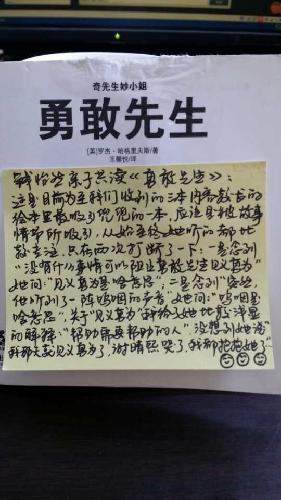 奇先生妙小姐
勇敢先生
[英]罗杰·哈格里夫斯/著
王馨悦/译
亲子共读《勇敢先生》：
这是目前为至我们收到的三本内容较长的
绘本里最吸引兜兜的一本，应该是被故事
情节所吸引，从始至终她听的都比
较专注，只在两次打断了一下：一是念到
“没有什么事情可以阻止勇敢先生见义勇为”
她问：“见义勇为是啥意思；二是念到突然，
他听到了一阵呜咽的声音，她问：“呜咽是
啥意思”，关于“见义勇为”我给了她比较浅显
的解释：“帮助需要帮助的人”，没想到她说
“我那天就见义勇为了，谢晴熙哭了，我都抱抱她了”